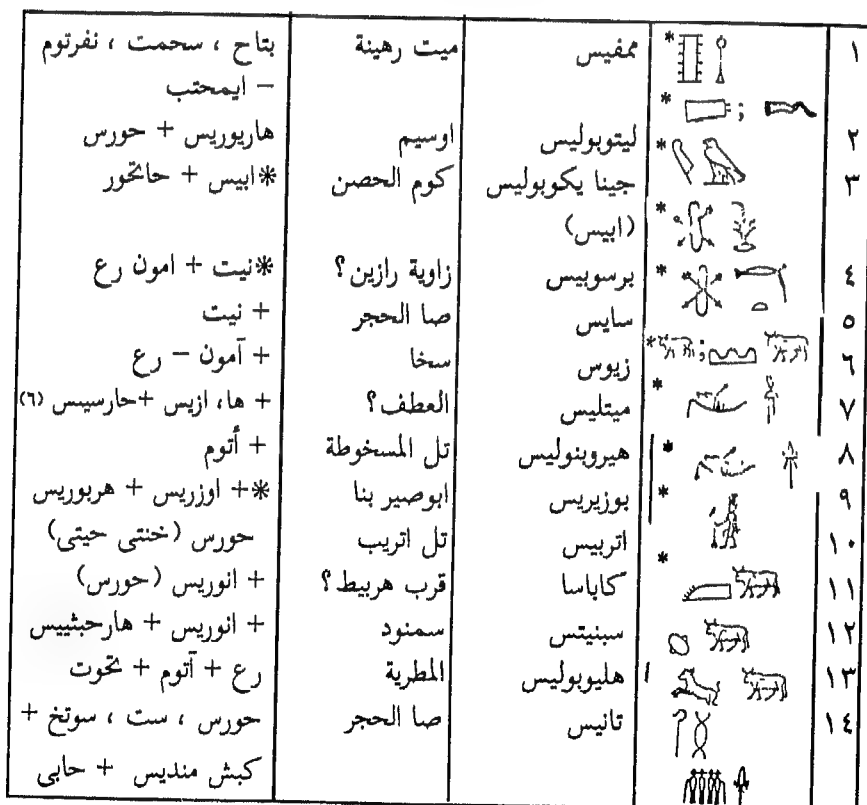 ١ * ممفيس ميت رهينة بتاح ، سحمت ، نفرتوم
* ; – ايمحتب
٢ * ليتوبوليس اوسيم هاربوريس + حورس
٣ جينا يكوبوليس كوم الحصن *ابيس + حاتحور
* (ابيس)
٤ * برسوبيس زاوية رازين؟ *نيت + امون رع
٥ سايس صا الحجر + نيت
٦ ; * زيوس سخا + آمون – رع
٧ * ميتليس العطف؟ + ها، ازيس +حارسيس (٦)
٨ * هيروبنوليس تل المسخوطة + أتوم
٩ * بوزيريس ابوصير بنا *+ اوزريس + هربوريس
١٠ اتربيس تل اتريب حورس (خنتى حيتى)
١١ * كاباسا قرب هربيط؟ + انوريس (حورس)
١٢ سبنيتس سمنود + انوريس + هارحبثييس
١٣ هليوبوليس المطرية رع + آتوم + تحوت
١٤ تانيس صا الحجر حورس ، ست ، سوتخ +
كبش منديس + حابى